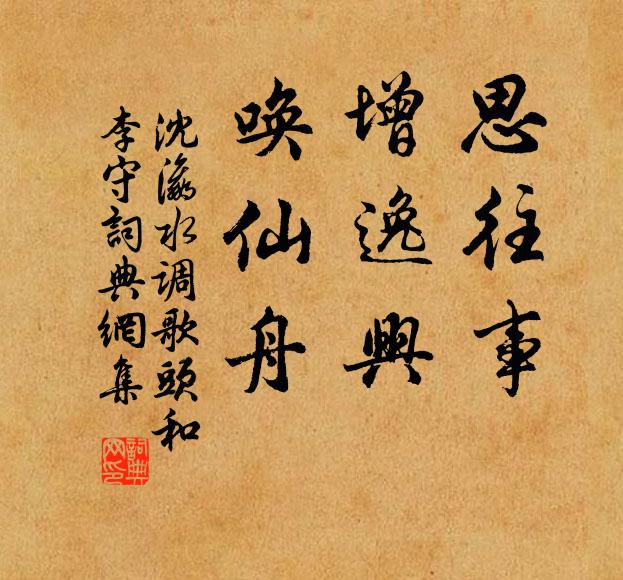 思往事
增逸興
喚仙舟
沈瀛水调歌頭和
李守詞典網集
詞典网印